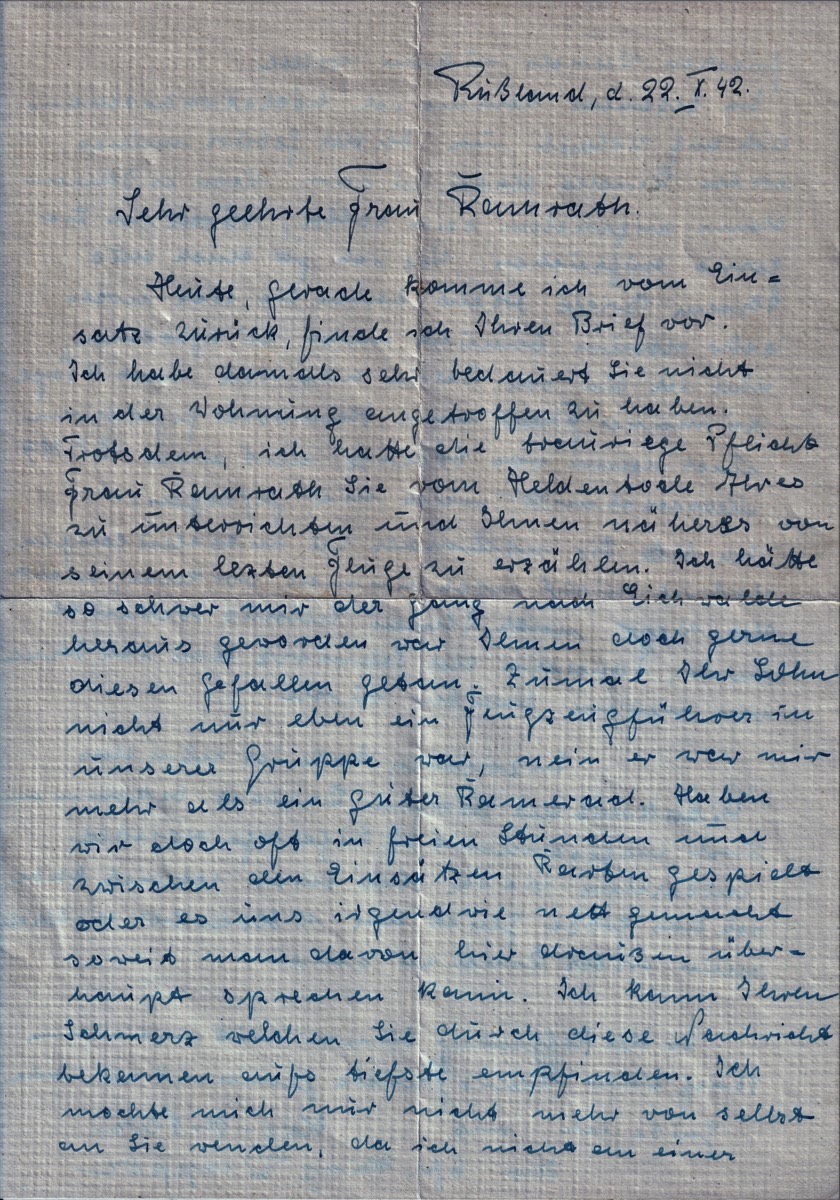 Rußland, d. 22. X. 42.
Sehr geehrte Frau Ramrath.
Heute, gerade komme ich vom Ein=
satz zurück, finde ich Ihren Brief vor.
Ich habe damals sehr bedauert Sie nicht
in der Wohnung angetroffen zu haben.
Trotsdem, ich hatte die trauriege Pflicht
Frau Ramrath Sie vom Heldentode Ihres
zu unterrichten und Ihnen näheres von
seinem lezten Fluge zu erzählen. Ich hätte
so schwer mir der Gang nach Eichwalde
heraus geworden war Ihnen doch gerne
diesen Gefallen getan. Zumal Ihr Sohn
nicht nur eben ein Flugzeugführer in
unserer Gruppe war, nein er war mir
mehr als ein guter Kamerad. Haben
wir doch oft in freien Stunden und
zwischen den Einsätzen Karten gespielt
oder es uns irgendwie nett gemacht
soweit man davon hier draußen über-
haupt sprechen kann. Ich kann Ihren
Schmerz welchen Sie durch diese Nachricht
bekamen aufs tiefste empfinden. Ich
mochte mich nur nicht mehr von selbst
an Sie wenden, da ich nicht an einer